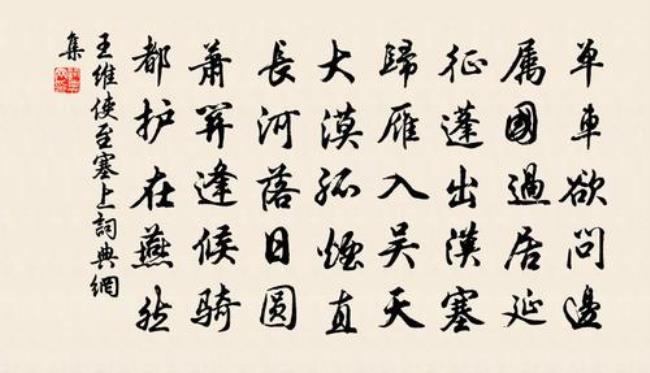 单車欲問邊
属國過居延
征蓬出漢塞
歸雁入吴天
大漠孤煙直
長河落日圆
萧関逢候骑
都护在燕然
王維使至塞上詞典網
集